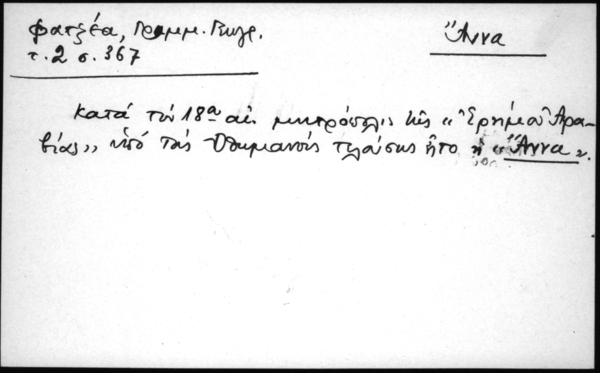 Φατζέα, Γραμμ. Γεωγρ.
τ. 2 σ. 367
Ἄννα
Κατά τόν 18ᵒ αἰ. μητρόπολις τῆς «Ἐρήμου Ἀρα-
βίας» ὑπό τούς Ὀθωμανούς ἦτο ἡ «Ἄννα».